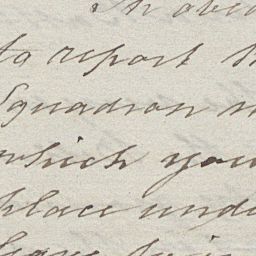 In obed
to report th
Squadron n
which you
place unde